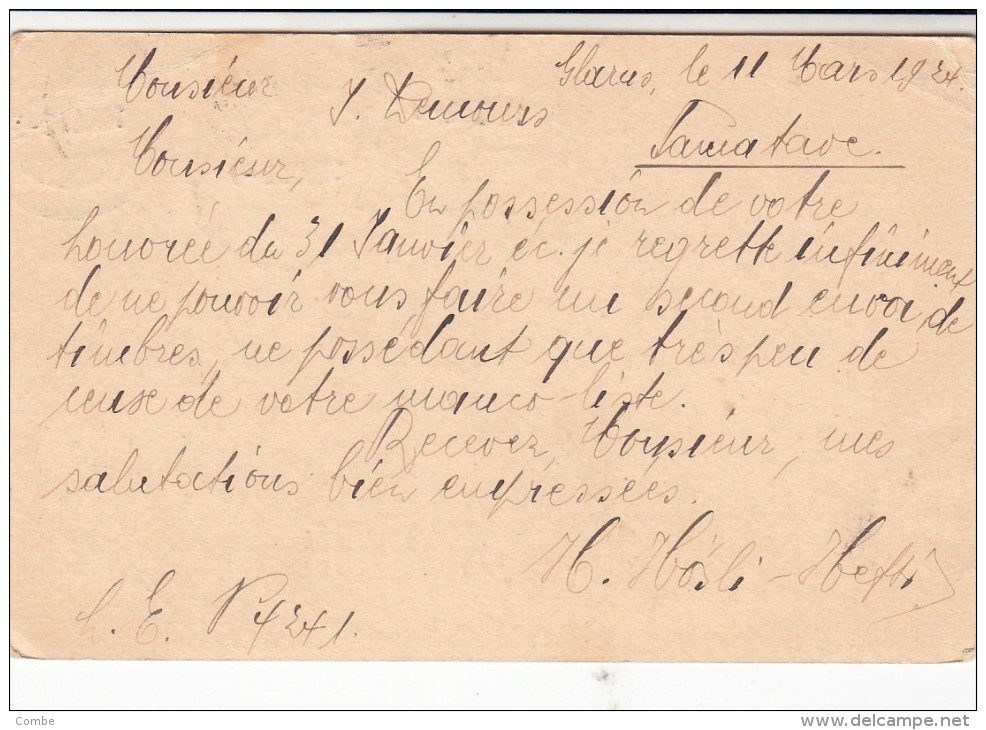 Glarus, le 11 Mars 1924.
Monsieur
J. Demours
Tamatave.
Monsieur,
En possession de votre
honorée du 31 Janvier éc. je regrette infiniment
de ne pouvoir vous faire un second envoi de
timbres, ne possédant que très peu de
ceuse de votre manco-liste.
Recevez, Monsieur, mes
salutations bien empressées.
H. Hösli-Hefti
L. E. N 4241.
Combe
www.delcampe.net